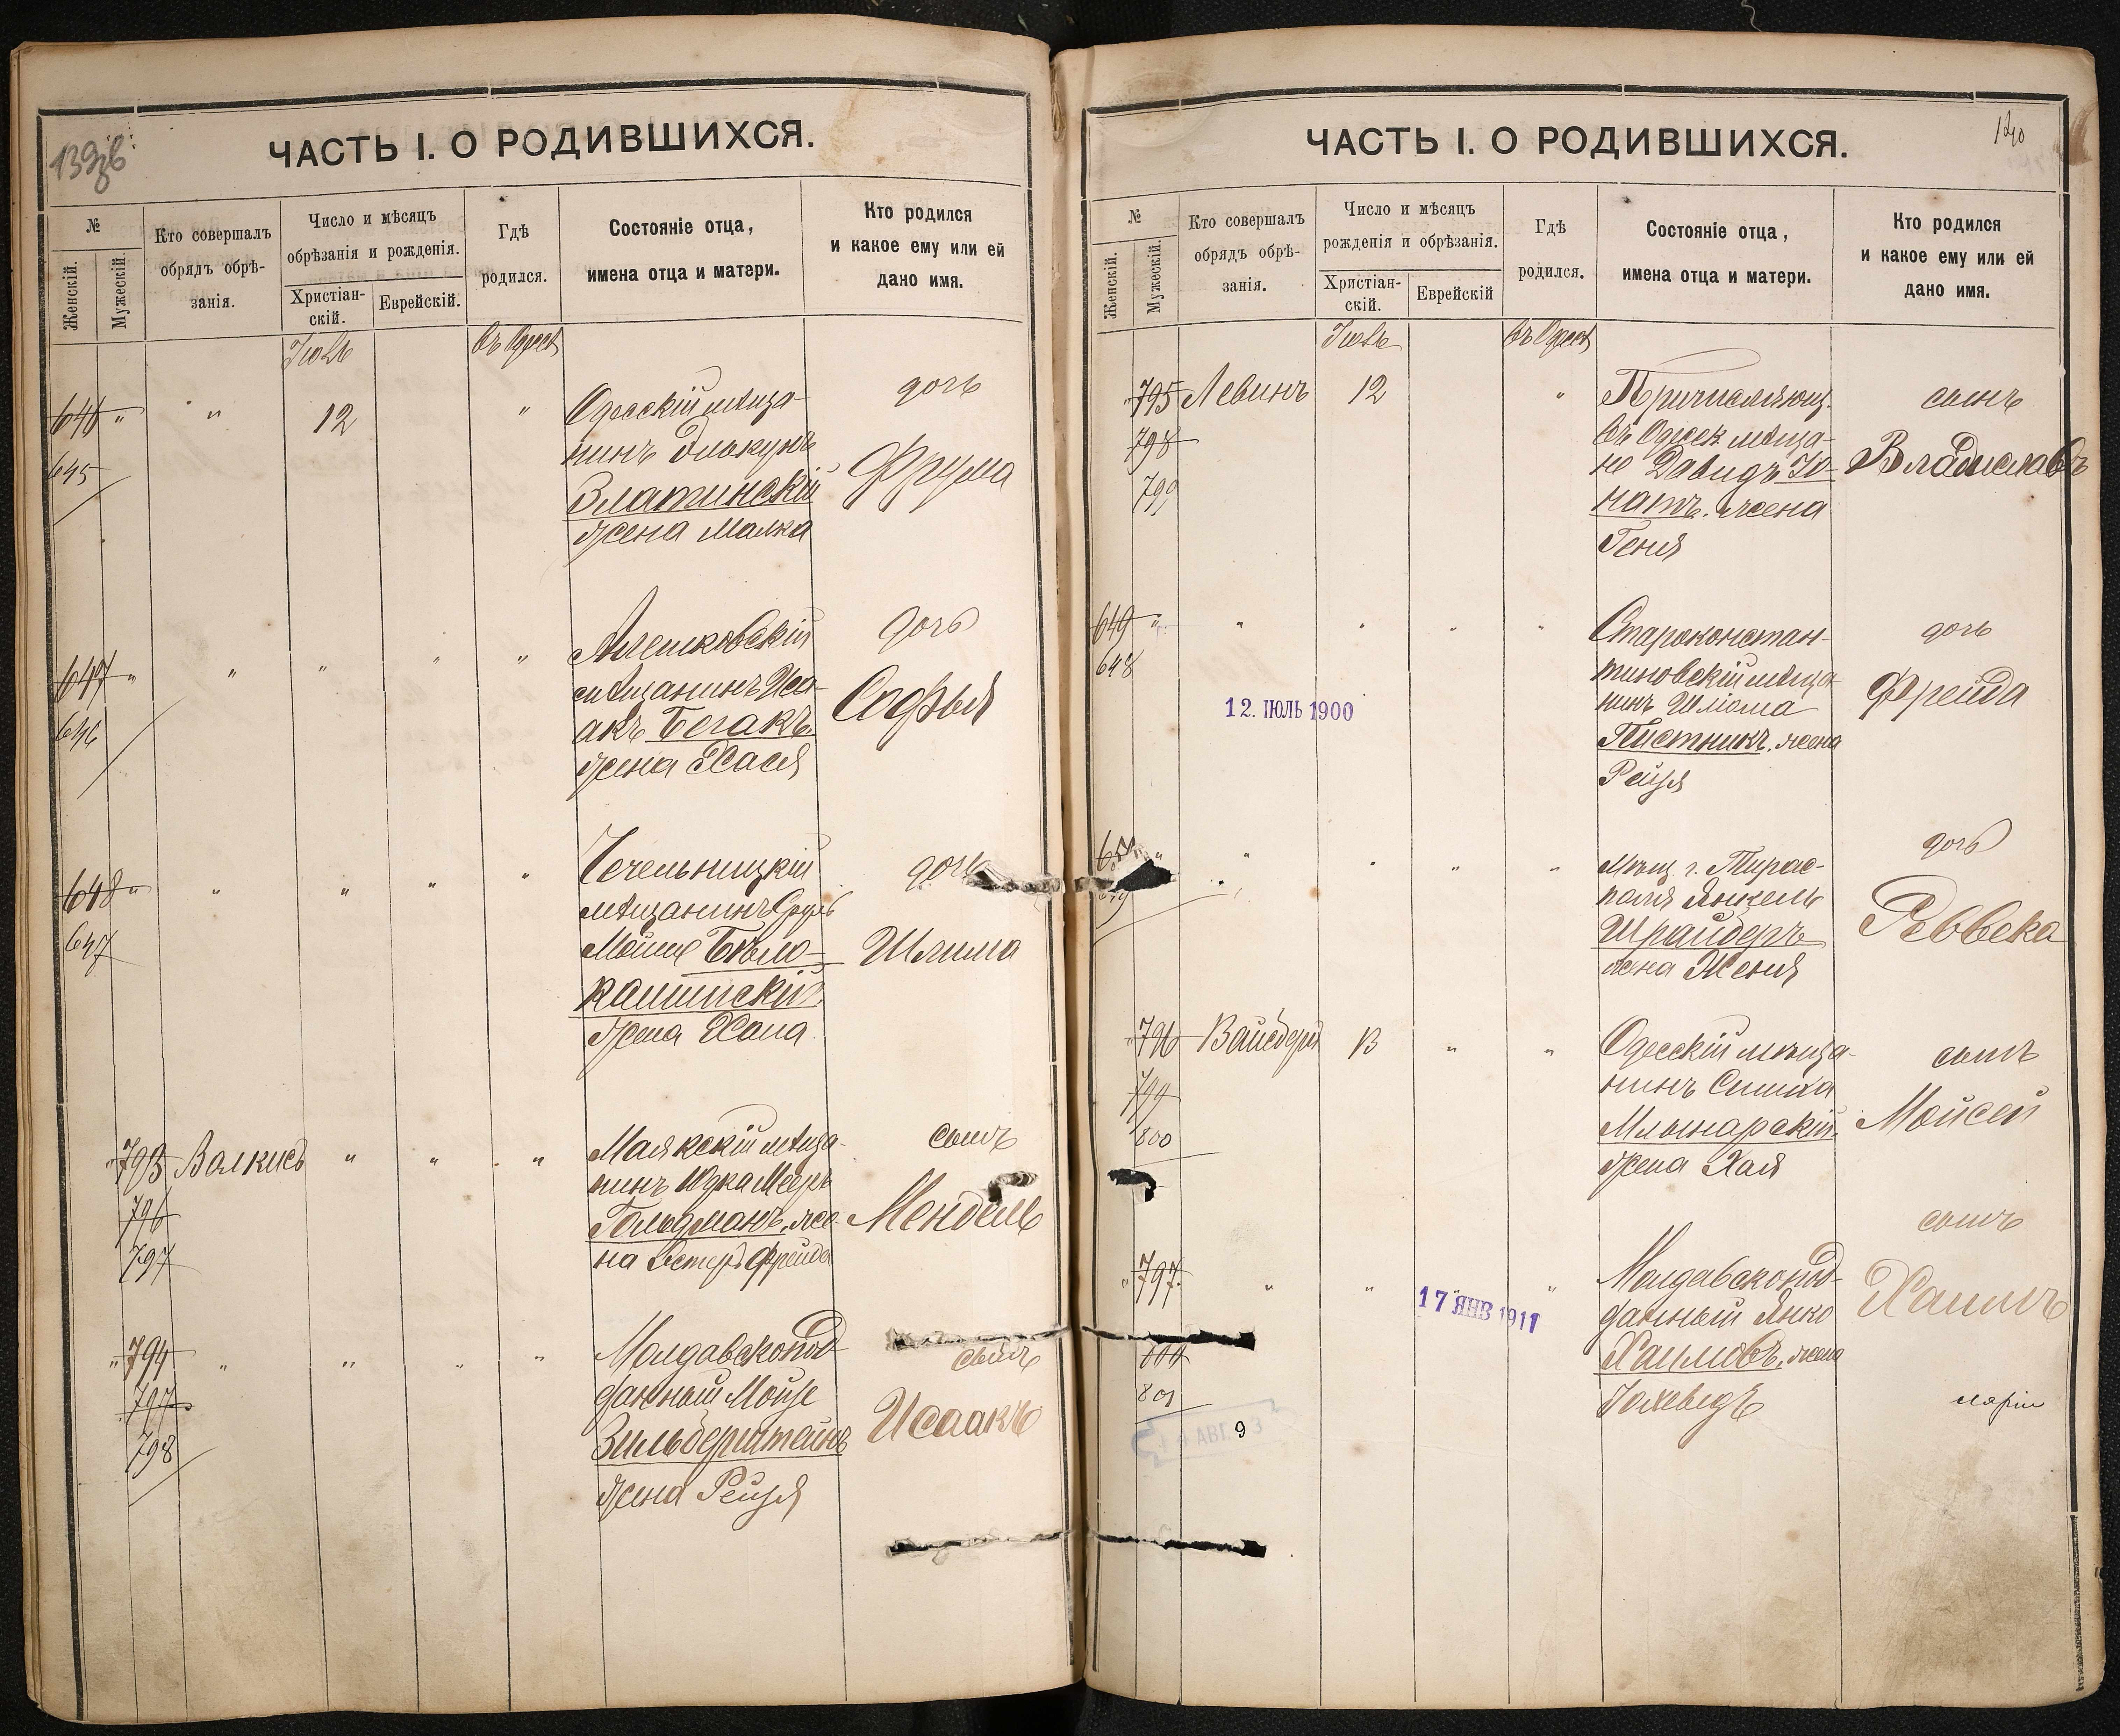 139об
ЧАСТЬ I. О РОДИВШИХСЯ.
№
Женскій.
Мужескій.
Кто совершалъ
обрядъ обрѣ-
занія.
Число и мѣсяцъ
обрѣзанія и рожденія.
Христіан-
скій.
Еврейскій.
Гдѣ
родился.
Состояніе отца,
имена отца и матери.
Кто родился
и какое ему или ей
дано имя.
Іюль
въ Одессѣ
646 " " 12 "
645
Одесскій мѣща-
нинъ
Златинскій
жена Малка
дочь
Фрума
647 " " " " "
646
Алешковскій
мѣщанинъ Иса-
акъ Бегакъ.
жена Хася
дочь
Софья
648 " " " " "
647
Чечельницкій
мѣщанинъ Сруль
Мойше Бѣло-
камискій
жена Хана
дочь
Шлима
" 793 Валкисъ " " "
796
797
Маякскій мѣща-
нинъ Юдка Мееръ
Гольдманъ, же-
на Эстеръ Фрейда
сынъ
Мендель
" 794 " " " "
797
798
Молдавскопод-
данный Мойзе
Зильберштейнъ
жена Рейзя
сынъ
Исаакъ
140
ЧАСТЬ I. О РОДИВШИХСЯ.
№
Женскій.
Мужескій.
Кто совершалъ
обрядъ обрѣ-
занія.
Число и мѣсяцъ
рожденія и обрѣзанія.
Христіан-
скій.
Еврейскій
Гдѣ
родился.
Состояніе отца,
имена отца и матери.
Кто родился
и какое ему или ей
дано имя.
Іюль
въ Одессѣ
" 795 Левинъ 12 "
798
799
Причисляющ.
въ Одесск. мѣща-
не Давидъ Іо-
натъ. жена
Геня
сынъ
Владиславъ
649 " " " " "
648
12. ІЮЛЬ 1900
Староконстан-
тиновскій мѣща-
нинъ Шліома
Пистникъ. жена
Рейзя
дочь
Фрейда
" " " "
Мѣщ. г. Тирас-
поля Янкель
Шрайберъ
жена Женя
дочь
Реввека
" 796 Вайсбергъ 13 " "
799
800
Одесскій мѣща-
нинъ Симха
Млынарскій.
жена Хая
сынъ
Мойсей
" 797. " " "
17 ЯНВ 1911
801
9
Молдавскопод-
данный Янко
Хаимовъ. жена
Іохеведъ
сынъ
Хаимъ